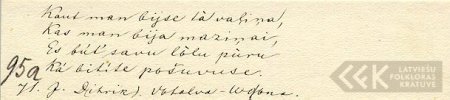 Kaut man bijse tā vaļiņa,
Kas man bija maziņai,
Es būt' savu lōlu pūru
Kā bitīte pošuvuse.
95a
/1. J. Ditrik), Votalva-
LATVIEŠU
FOLKLORAS
KRĀTUVE